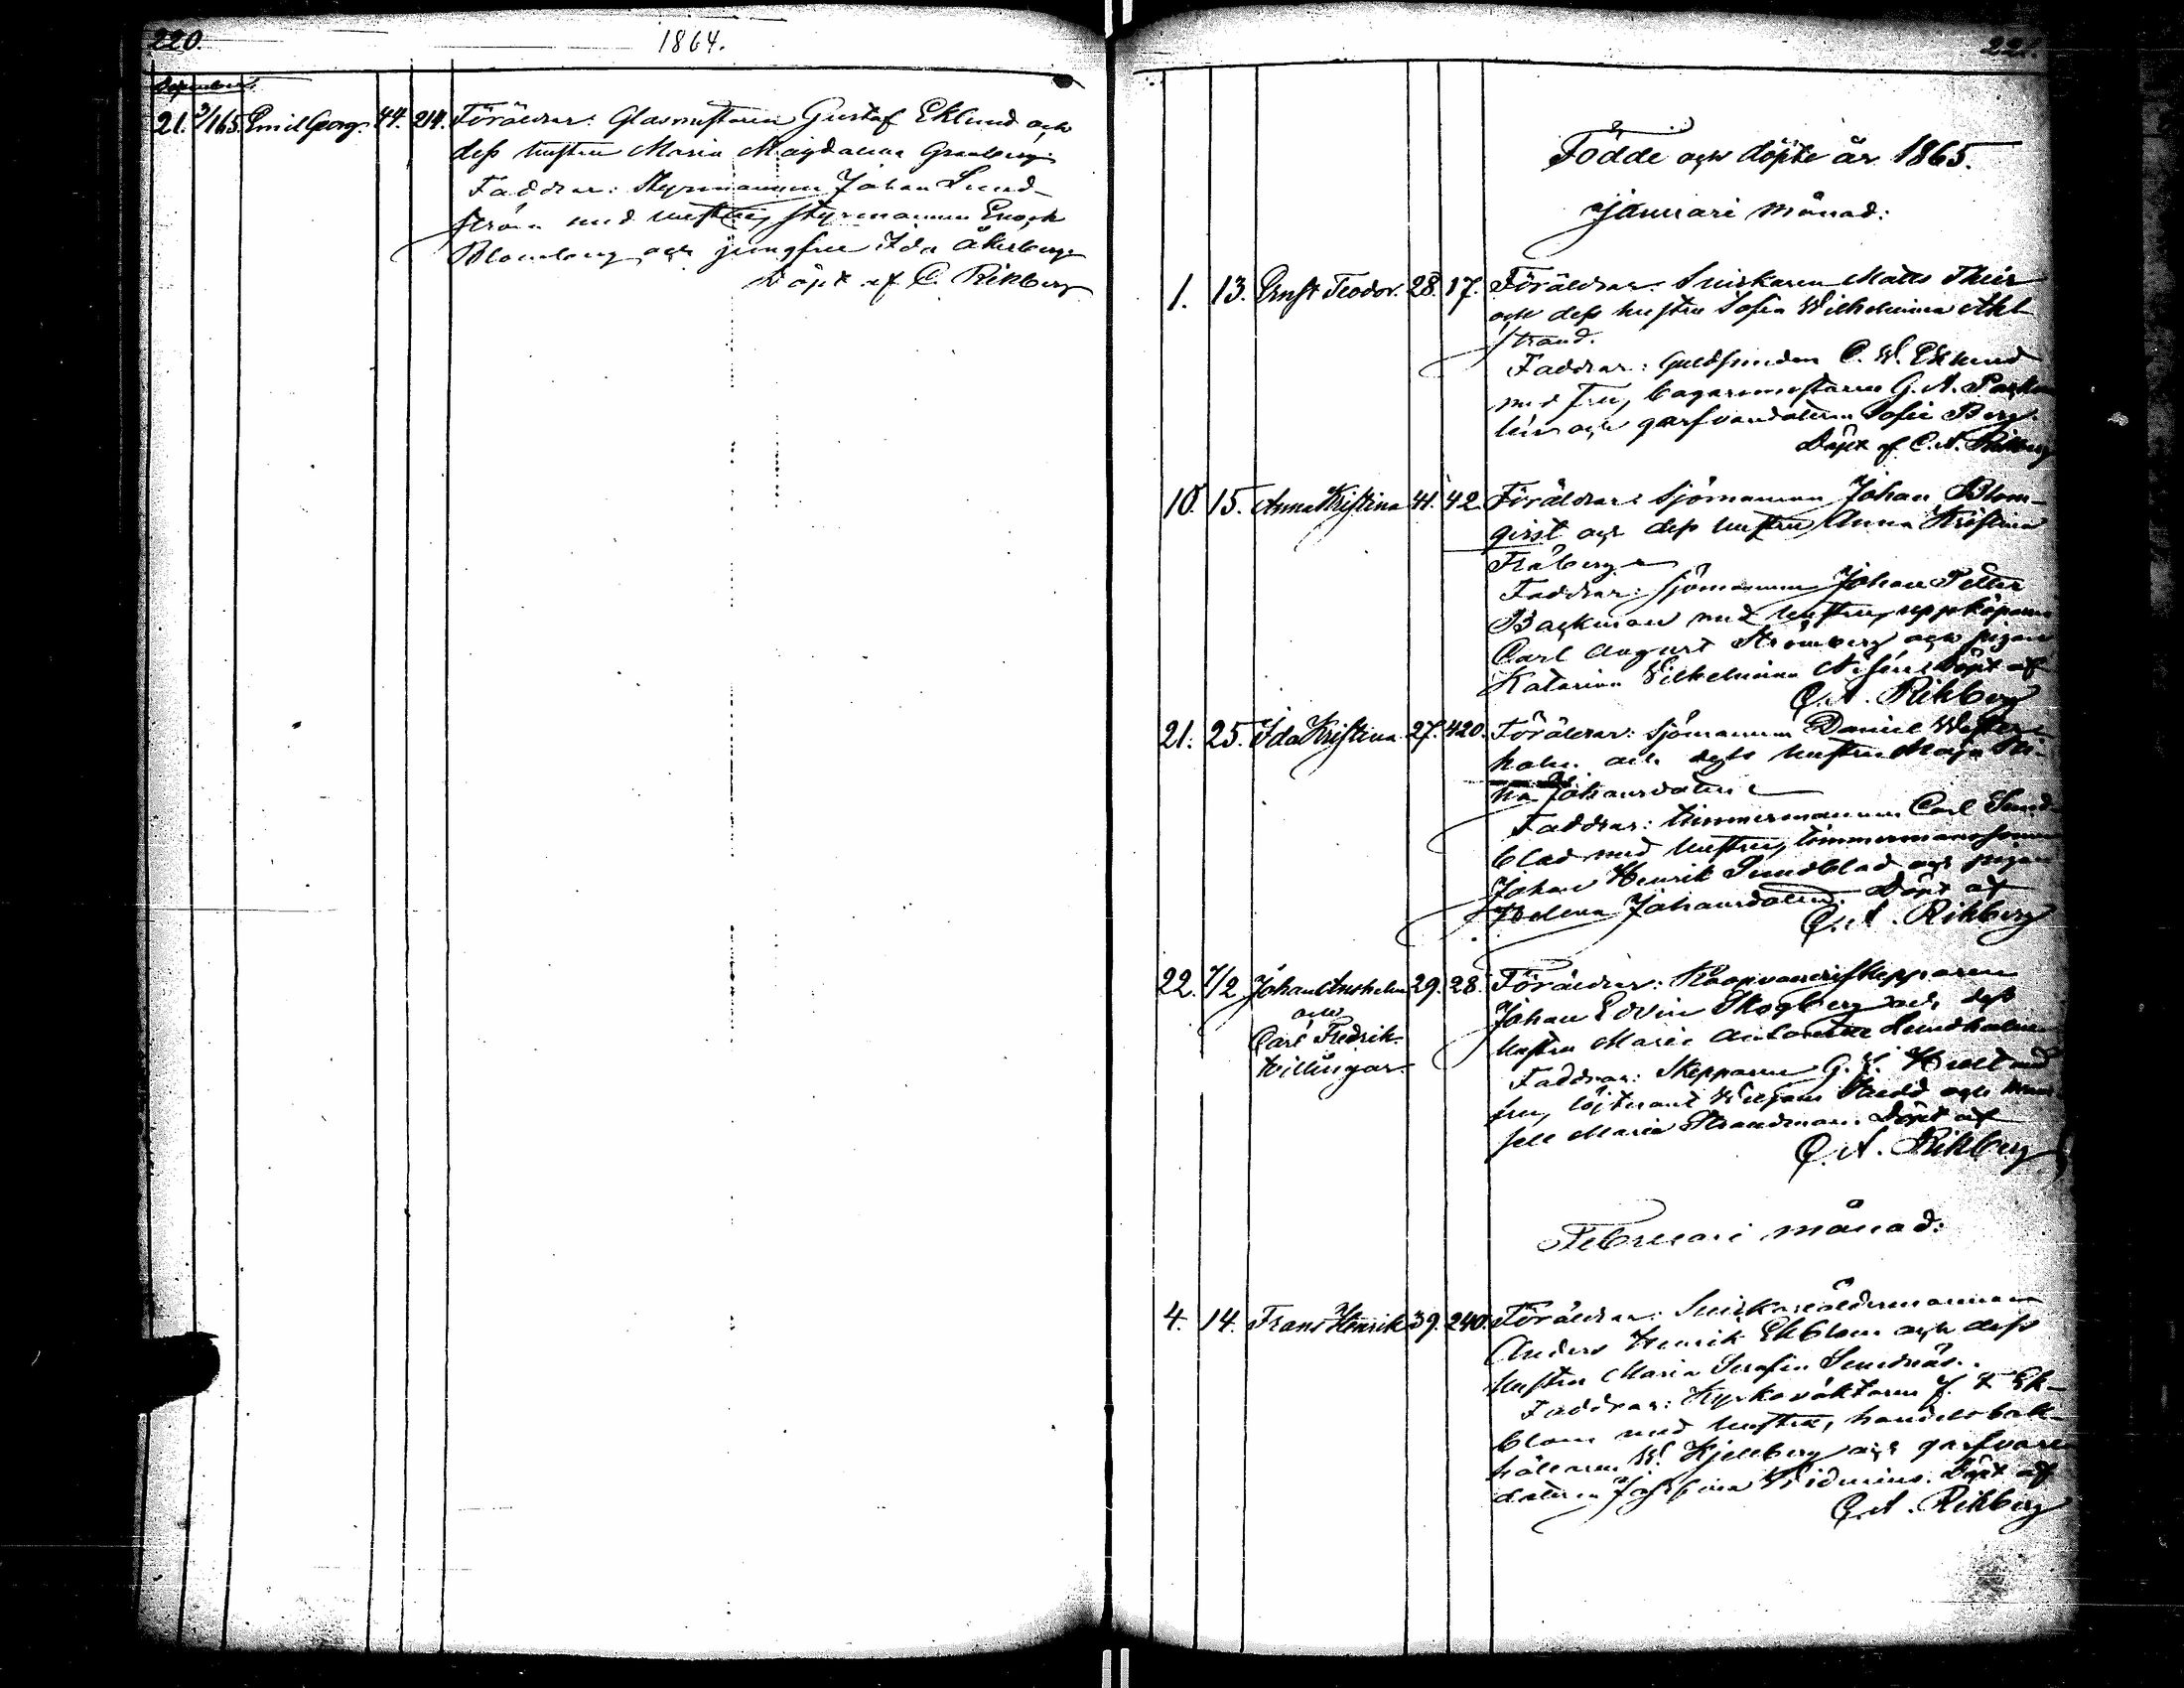 220.
1864.
21. 3/1 65. Emil Georg. 44. 214. Föräldrar: Glasmästaren Gustaf Eklund och
dess hustru Maria Magdalena Granberg.
Faddrar: Styrmannen Johan Lund-
ström med hustru, styrmannen Enoch
Blomberg och jungfru Ida Åkerberg
Döpt af C. Rikberg
221.
Födde och döpte år 1865.
Januari månad:
1. 13. Ernst Teodor. 28. 17. Föräldrar: Snickaren Matts
och dess hustru Sofia Wilhelmina Ahl
strand.
Faddrar: Guldsmeden C. W. Eklund
med fru, bagaremästaren G. A.
och garfvaredottern Sofie Berg.
Döpt af C. A. Rikberg
10. 15. Anna Kristina 41. 42. Föräldrar: Sjömannen Johan Blom-
qvist och dess hustru Anna Kristina
Fröberg
Faddrar: sjömannen Johan Petter
Backman med hustru, uppköparen
Carl August Strömberg och pigan
Katarina Vilhelmina Döpt af
C. A. Rikberg
21. 25. Ida Kristina 27. 420. Föräldrar: Sjömannen Daniel Wester-
holm och dess hustru Maja
Johansdotter
Faddrar: timmermannen Carl Sund-
blad med hustru, timmermanssonen
Johan Henrik Sundblad och pigan
Helena Johansdotter. Döpt af
C. A. Rikberg
22. 7/2 Johan Anshelm 29. 28. Föräldrar: Koopvaerdiskepparen
och
Johan Edvin Skogberg och dess
Carl Fredrik
hustru Maria Antonette Lundholm
tvillingar.
Faddrar: Skepparen G. med
fru, löjtnant och mam
sell Maria Strandman. Döpt af
C. A. Rikberg
Februari månad:
4. 14. Frans Henrik 39. 240. Föräldrar: Snickareåldermannen
Anders Henrik Ekblom och dess
hustru Maria Serafia Sundnäs.
Faddrar: Kyrkováktaren J. Ek-
blom med hustru, handelsbok-
hållaren W. Kjellberg och garfvare
dottern Josefina Widenius. Döpt af
C. A. Rikberg